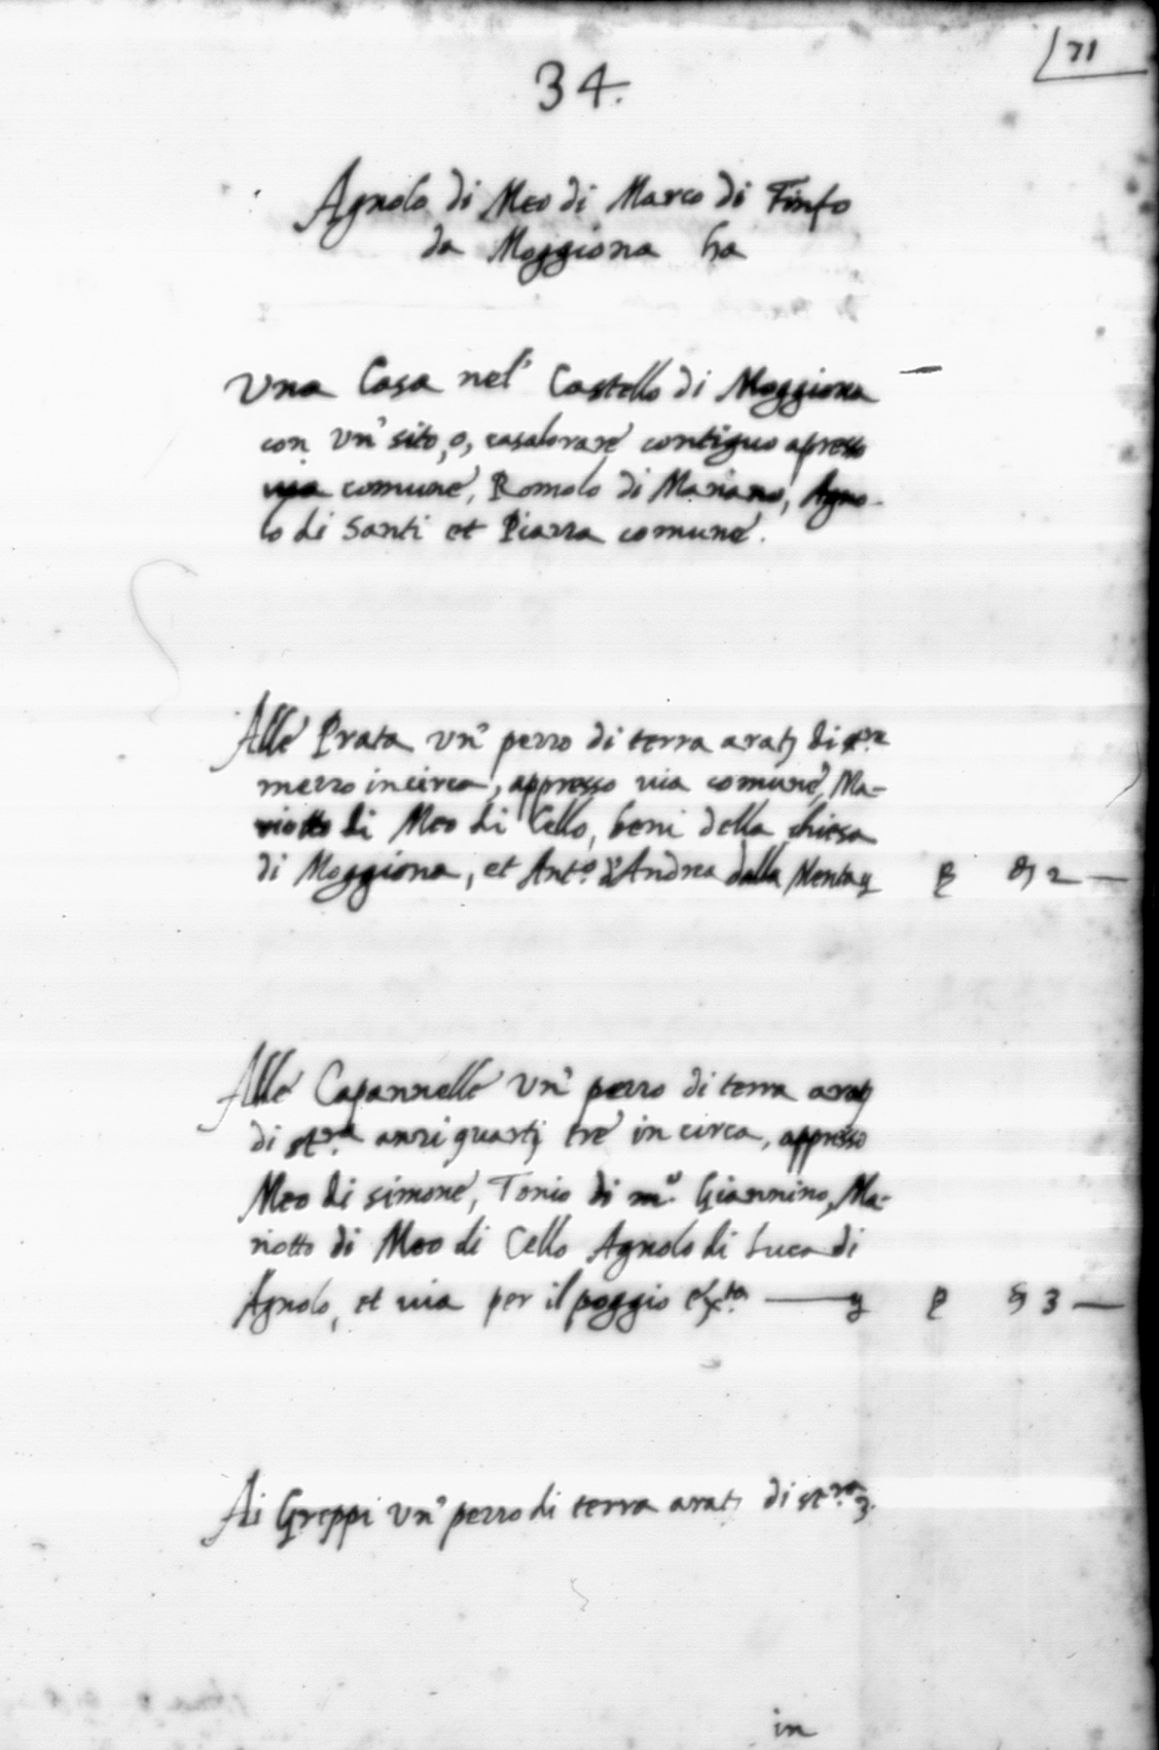 71
34.
Agnolo di Meo di Marco di Finfo
da Moggiona ha
Una Casa nel' Castello di Moggiona —
con un' sito, o, casalovare contiguo apresso
via comune, Romolo di Mariano, Agno-
lo di Santi et Piazza comune.
Alle Prata un' pezzo di terra arat, di
mezzo incirca, appresso via comune, Ma-
riotto di Meo di Cello, beni della chiesa
di Moggiona, et Ant.º d'Andrea dalla Menta 2 —
Alle Capannelle un' pezzo di terra arat
di st.ra anzi quarti tre in circa, appresso
Meo di Simone, Tonio di m.º Giannino, Ma-
riotto di Meo di Cello Agnolo di Luca di
Agnolo, et via per il poggio — 3 —
Ai Greppi un' pezzo di terra arat, di st.ra 3.
in